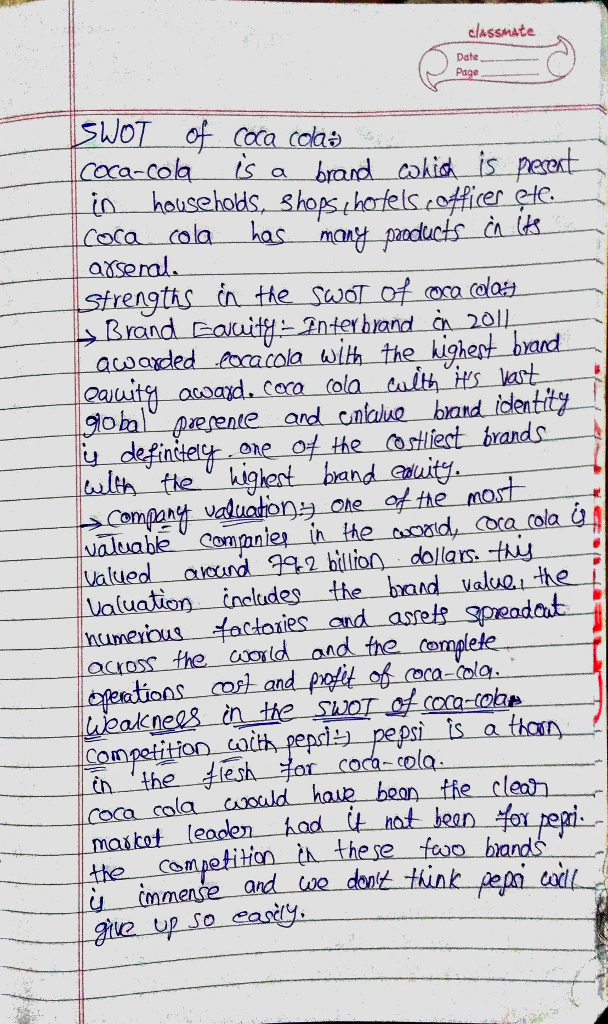 classmate
Date
Page
SWOT of coca cola:)
coca-cola is a brand which is present
in households, shops, hotels, offices etc.
coca cola has many products in its
arsenal.
strengths in the SWOT of coca cola:)
→ Brand Equity:- Interbrand in 2011
awarded cocacola with the highest brand
equity award. coca cola with it's vast
global presence and unique brand identity
is definitely one of the costliest brands
with the highest brand equity.
→ company valuation:) one of the most
valuable companies in the world, coca cola is
valued around 79.2 billion dollars. this
valuation includes the brand value, the
numerious factories and assets spreadout
across the world and the complete
operations cost and profit of coca-cola.
Weakness in the SWOT of coca-cola
competition with pepsi:) pepsi is a thorn
in the flesh for coca-cola.
coca cola would have been the clear
market leader had it not been for pepsi.
the competition in these two brands
is immense and we don't think pepsi will
give up so easily.